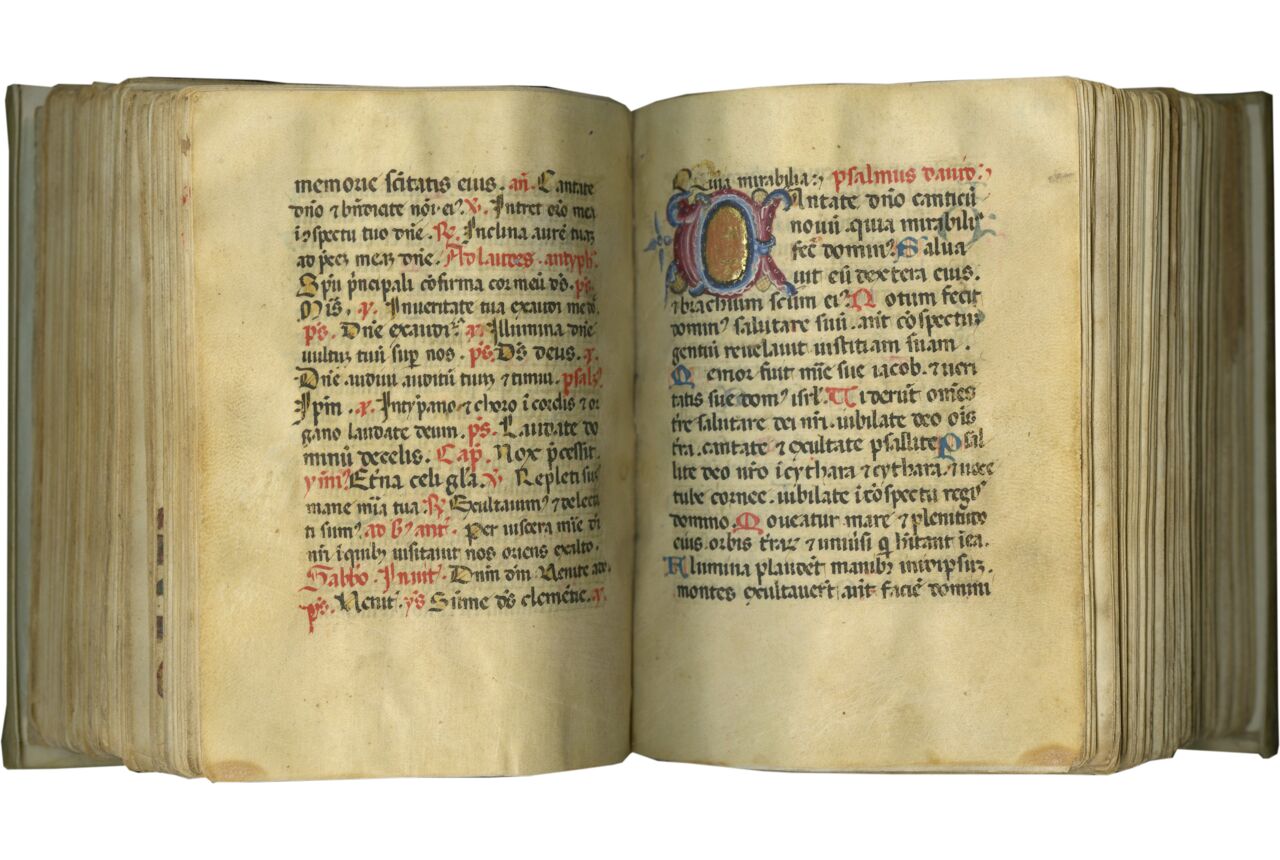 memorie sc̄itatis eius . añ. Cantate
dn̄o ⁊ bn̄dicite nōi eiꝰ. ꝟ. Intret or̄o mea
ī ꝯspectu tuo dn̄e . ℟. Inclina aurē tuaꝫ
ad p̄ces meaꝫ dn̄e. Ad laudes . antyph̄.
Sp̄u p̄ncipali cōfirma cor meū dꝰ. ps.
Mis̄. a. In ueritate tua exaudi me dn̄e.
ps̄. Dn̄e exaudi. a. Illumina dn̄e
uultuꝫ tuū suꝑ nos . ps̄. Ds̄ deus. a.
Dn̄e audiui auditū tuuꝫ ⁊ timui. psalꝰ
Ip̄m . a. In tȳpano ⁊ choro ī cordis ⁊ or
gano laudate deum . ps̄. Laudate do
minū de celis. Cap̄. Nox p̄cessit.
ym̄. Et̄na celi gl̄a. ꝟ. Repleti suꝰ
mane mīa tua. ℟. Exultauimꝰ ⁊ delecta
ti sumꝰ. ad b̄. ant̄. Per uiscera mīe di
nr̄i ī quibꝫ uisitauit nos oriens exalto.
Sabb̄o . Inuit̄. Dnm̄ dm̄ Uenite ado.
ps̄. Uenit̄. ys̄ Sūme ds̄ clemētie. a.
Quia mirabilia. psalmus dauid.
Cantate dn̄o canticū
nouū . quia mirabiliꝰ
fec̄ dominꝰ. Salua
uit eū dextera eius.
⁊ brachium sc̄um eiꝰ. Notum fecit
dominꝰ salutare suū . an̄t cōspectuꝫ
gentiū reuelauit iustitiam suam .
Remor fuit mīe sue iacob . ⁊ ueri
tatis sue domꝰ isrl̄. Uiderūt om̄es
tr̄e salutare dei nr̄i . iubilate deo oīs
tr̄a . cantate ⁊ exultate ⁊ psallite. Psal
lite deo nr̄o ī cythara ⁊ cythara . ⁊ uoce
tube cornee . iubilate ī cōspectu regꝭ
domino. Moueatur mare ⁊ plenitudo
eius . orbis t̄raꝝ ⁊ uniūsi q̄ hītant ī ea.
Flumina plaudēt manibꝫ in idipsuꝫ.
montes exultauer̄t an̄t faciē domini